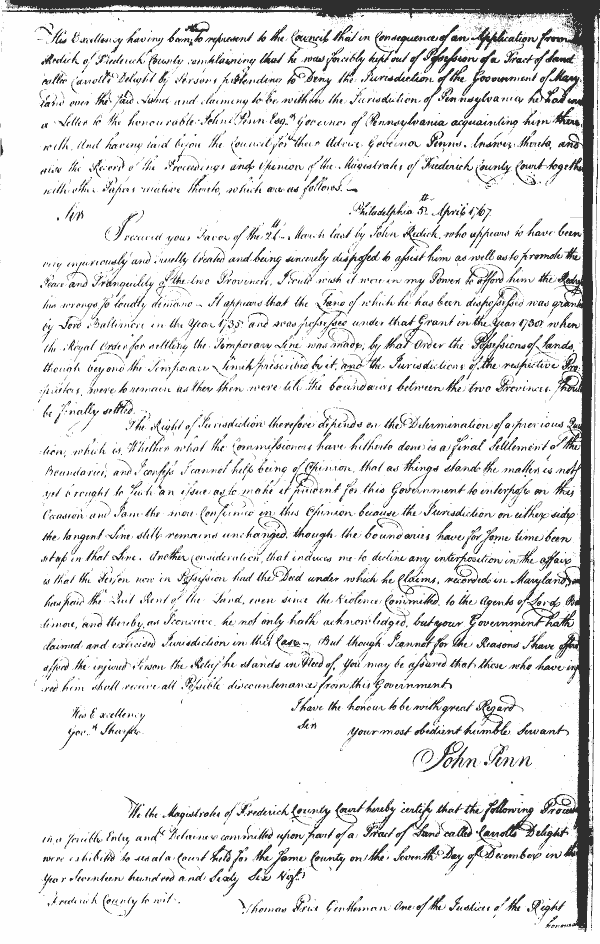 His Excellency having been pleased to represent to the Council that in Consequence of an Application from
Redick of Frederick County complaining that he was forcibly kept out of Possession of a Tract of Land
called Carrolls Delight by Persons pretending to Deny the Jurisdiction of the Government of Mary
land over the said Land and claiming to be within the Jurisdiction of Pennsylvania he had
a Letter to the honourable John Penn Esqr. Governor of Pennsylvania acquainting him there
with, And having laid before the Council for their Advice Governor Penns Answer thereto, and
also the Record of the Proceedings and Opinion of the Magistrates of Frederick County Court together
with other Papers relative thereto, which are as follows. —
Sir
Philadelphia 5th. April 1767.
I received your Favor of the 24th. March last by John Redick, who appears to have been
very injuriously and cruelly treated and being sincerely disposed to assist him as well as to promote the
Peace and Tranquility of the two Provinces, I could wish it were in my Power to afford him the
his wrongs so loudly demand — It appears that the Land of which he has been dispossessed was
by Lord Baltimore in the Year 1735 and was possessed under that Grant in the Year 1738 when
the Royal Order for settling the Temporary Line was made, by that Order the Possessions of Lands
though beyond the Temporary Limits prescribed by it, and the Jurisdictions of the respective Pro
prietors, were to remain as they then were till the boundaries between the two Provinces should
be finally settled.
The Right of Jurisdiction therefore depends on the Determination of a previous Ques
tion, which is, Whether what the Commissioners have hitherto done is a final Settlement of the
Boundaries, and I confess I cannot help being of Opinion, that as things stand the matter is not
yet brought to such an issue as to make it prudent for this Government to interpose on this
Occasion and I am the more Confirmed in this Opinion because the Jurisdiction on either side
the tangent Line still remains unchanged, though the boundaries have for some time been
set up in that Line. Another consideration, that induces me to decline any interposition in the affair
is that the Person now in Possession had the Deed under which he Claims, recorded in Maryland,
has paid the Quit Rent of the Land, even since the Violence Committed, to the Agents of Lord Bal
timore, and thereby, as I conceive, he not only hath acknowledged, but your Government hath
claimed and exercised Jurisdiction in this Case — But though I cannot for the Reasons I have
afford the injured Person the Relief he stands in Need of, You may be assured that those who have inj
red him shall receive all Possible discountenance from this Government
I have the honour to be with great Regard
His Excellency
Sir
Govr. Sharpe
Your most obedient humble Servant
John Penn
We the Magistrates of Frederick County Court hereby certify that the following
in a forcible Entry and Detainer committed upon part of a Tract of Land called Carrolls Delight
were exhibited to us at a Court held for the same County on the Seventh Day of December in the
Year Seventeen hundred and Sixty Six
Frederick County to wit.
Thomas Price Gentleman One of the Justices of the Right
honourable